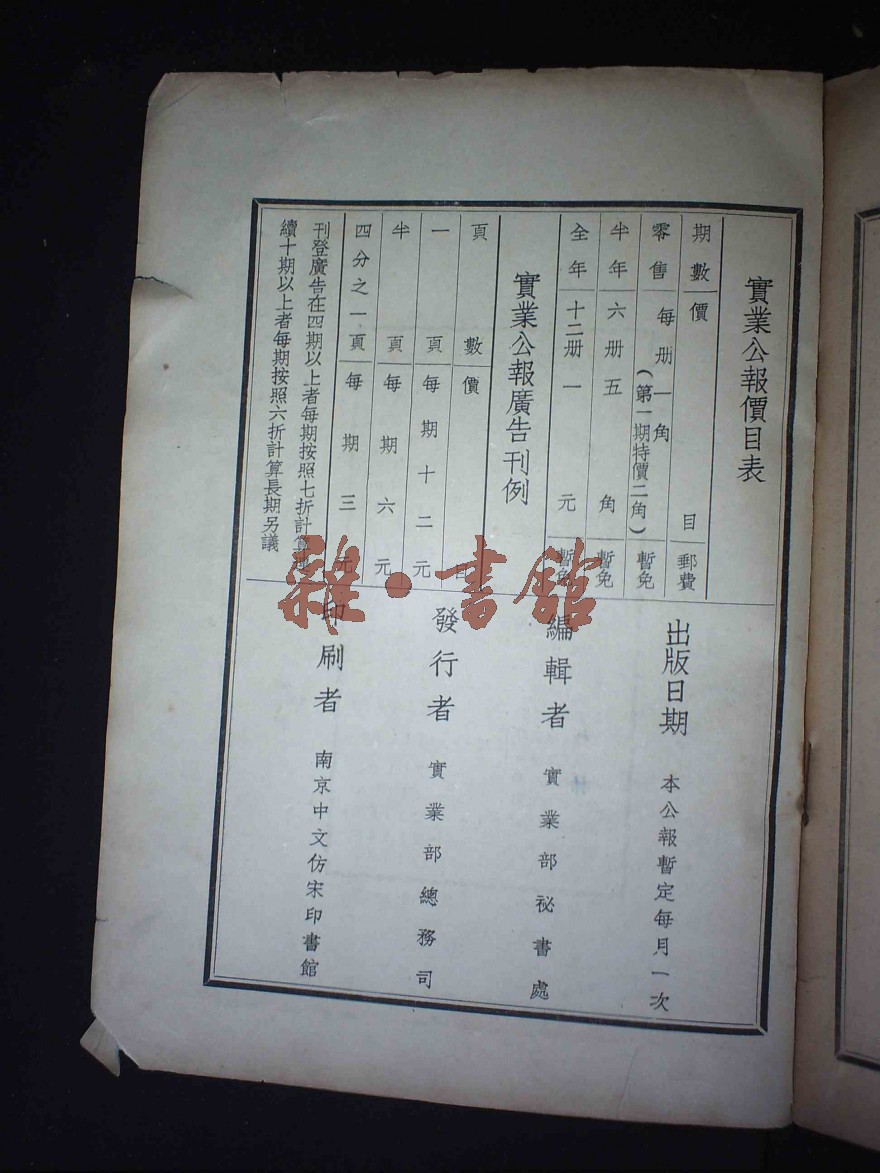 實業公報價目表
期數 價目 郵費
零售 每册一角 (第一期特價二角) 暫免
半年 六册 五角 暫免
全年 十二册 一元 暫免
實業公報廣告刊例
頁數 價目
一頁 每期十二元
半頁 每期六元
四分之一頁 每期三元
刊登廣告在四期以上者每期按照七折計算
續十期以上者每期按照六折計算長期另議
出版日期 本公報暫定每月一次
編輯者 實業部祕書處
發行者 實業部總務司
印刷者 南京中文仿宋印書館
雜·書館